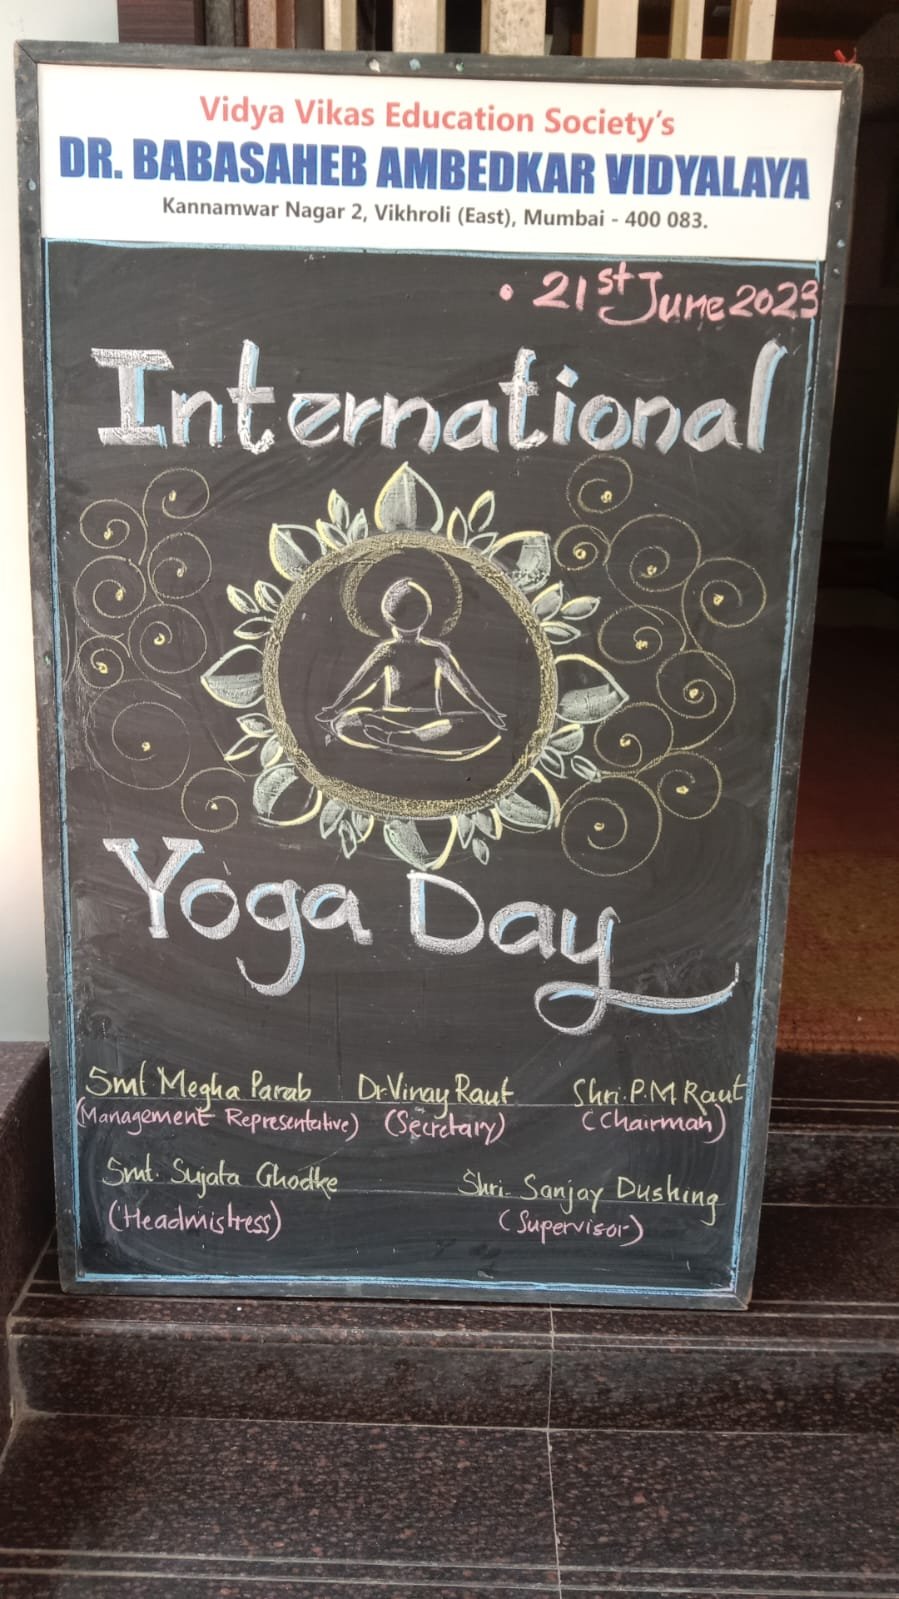 Vidya Vikas Education Society's
DR. BABASAHEB AMBEDKAR VIDYALAYA
Kannamwar Nagar 2, Vikhroli (East), Mumbai - 400 083.
• 21st June 2023
International
Yoga Day
Smt Megha Parab Dr Vinay Raut Shri. P.M Raut
(Management Representative) (Secretary) (Chairman)
Smt. Sujata Ghodke Shri. Sanjay Dushing
(Headmistress) (Supervisor)